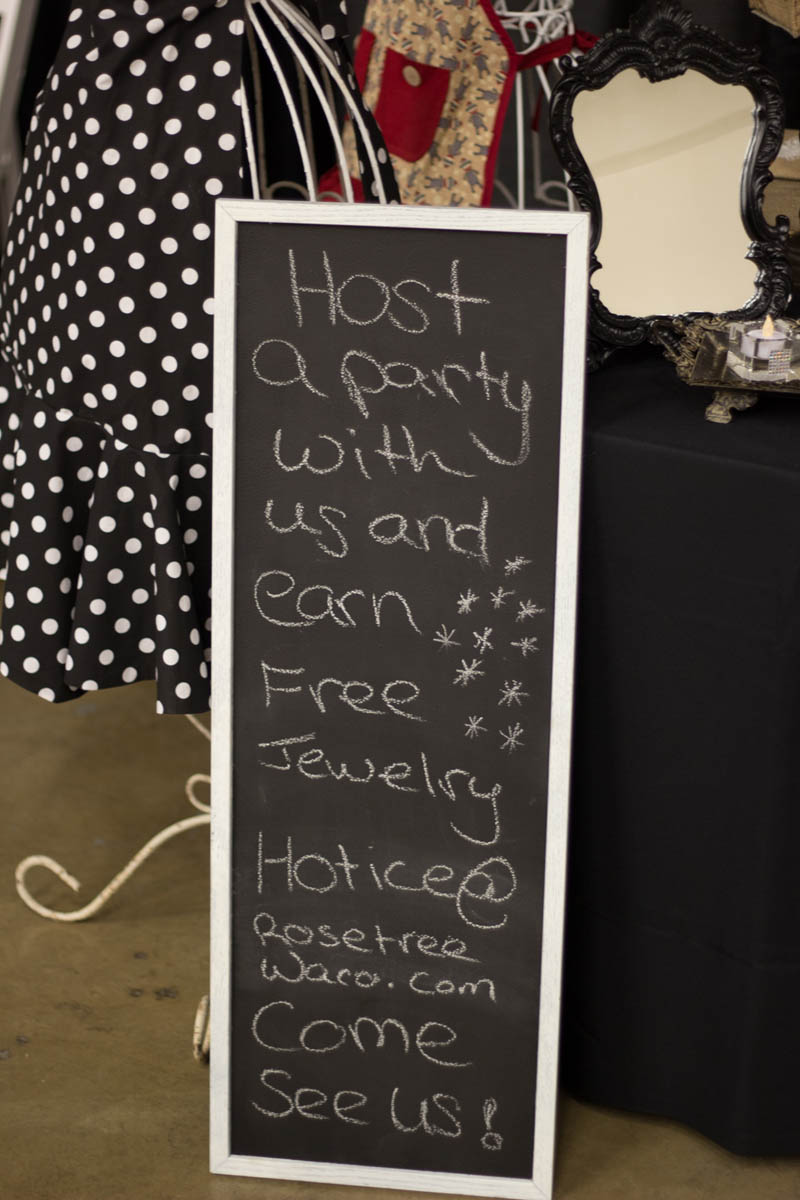 Host
a party
with
us and
earn
Free
Jewelry
Hotice@
Rosetree
Waco.com
Come
See us!